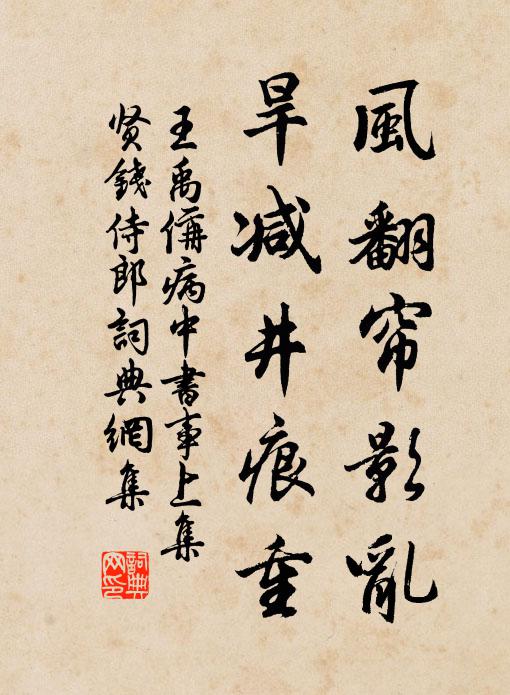 風翻帘影亂
旱減井痕重
王禹偁病中書事上集
贤錢侍郎詞典網集
詞典網印